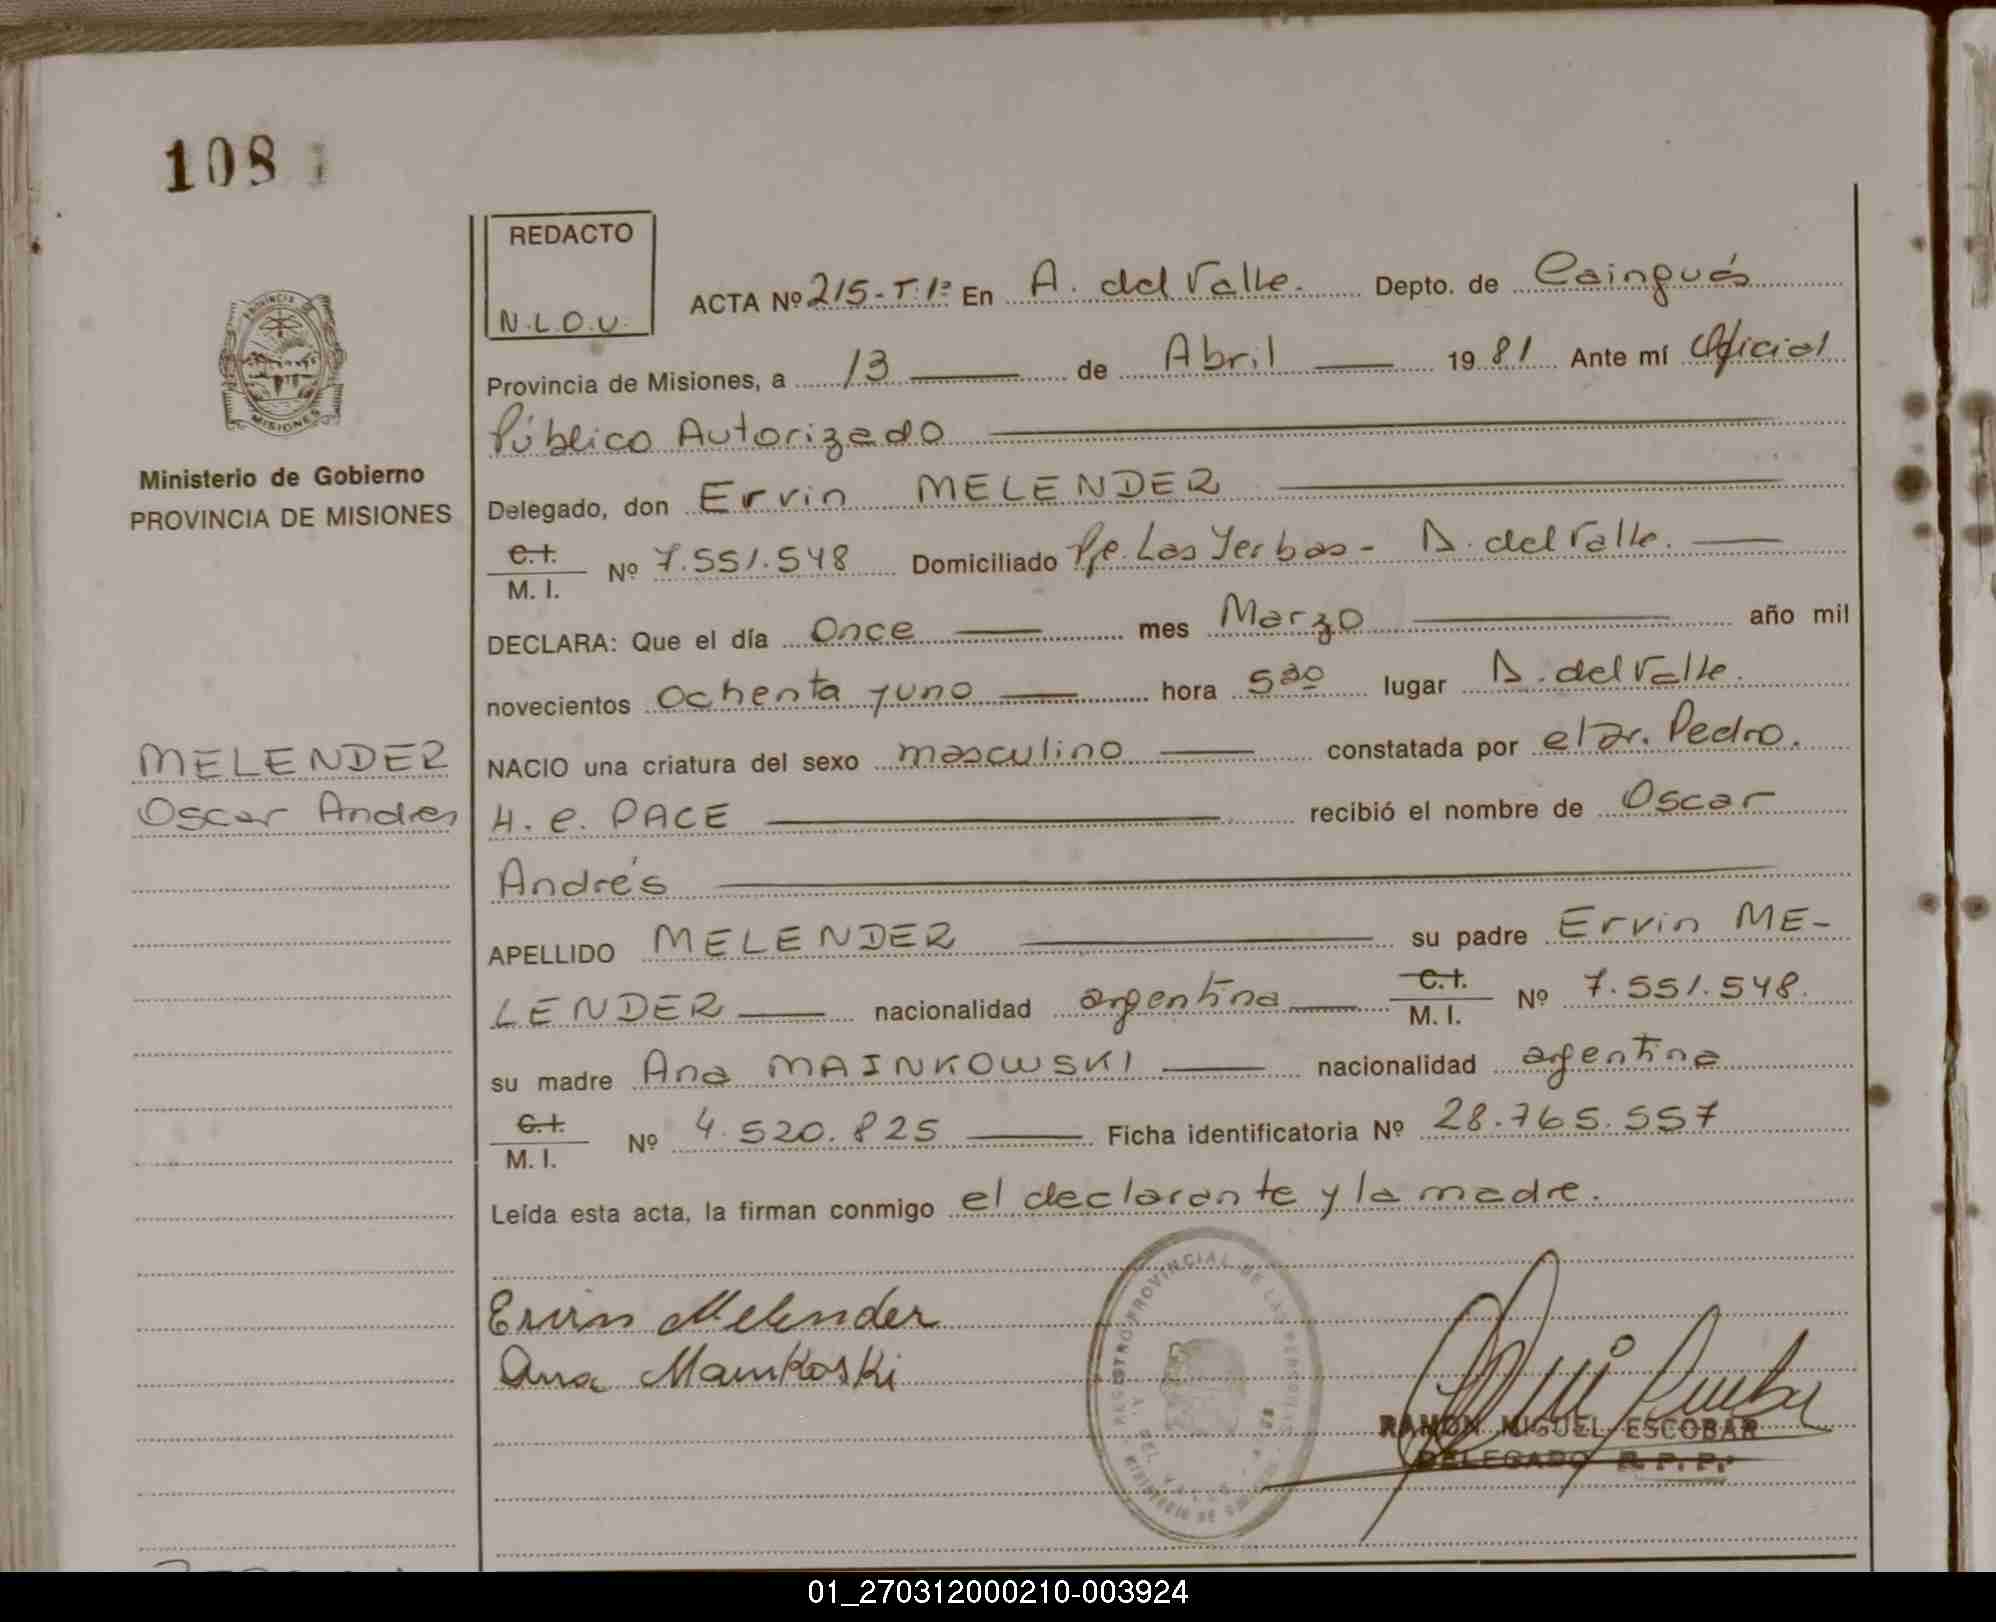 108
REDACTO
N.L.O.U.
ACTA Nº 215-T.1º En A. del Valle. Depto. de Cainguás
Provincia de Misiones, a 13 de Abril 1981 Ante mí Oficial
Público Autorizado
PROVINCIA DE
MISIONES
Ministerio de Gobierno
PROVINCIA DE MISIONES
Delegado, don Ervin MELENDER
C.I.
M. I. Nº 7.551.548 Domiciliado Pje. Las Yerbas - A. del Valle.
DECLARA: Que el día Once mes Marzo año mil
novecientos ochenta y uno hora 5 30 lugar A. del Valle.
MELENDER
Oscar Andres
NACIO una criatura del sexo masculino constatada por el Dr. Pedro.
H. C. PACE recibió el nombre de Oscar
Andrés
APELLIDO MELENDER su padre Ervin ME-
LENDER nacionalidad argentina C.I. M. I. Nº 7.551.548.
su madre Ana MAINKOWSKI nacionalidad argentina
C.I.
M. I. Nº 4.520.825 Ficha identificatoria Nº 28.765.557
Leída esta acta, la firman conmigo el declarante y la madre.
Ervin Melender
Ana Mainkoski
REGISTRO PROVINCIAL DE LAS PERSONAS
A. DEL VALLE
RAMON MIGUEL ESCOBAR
DELEGADO R. P. P.
01_270312000210-003924